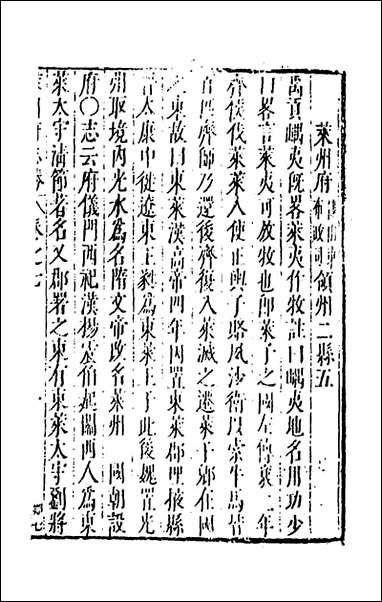 萊州府 布政司 領州二縣五
禹貢嵎夷旣畧萊夷作牧註曰嵎夷地名用功少
曰畧言萊夷可放牧也卽萊子之國左傳襄 年
齊侯伐萊萊人使正輿子賂夙沙衛以索牛馬皆
百匹齊師乃還後齊復入萊滅之遷萊于郳在國
之東故曰東萊漢高帝四年因置東萊郡理掖縣
晉太康中徙遼東王蕤爲東萊王于此後魏置光
州取境內光水爲名隋文帝改名萊州 國朝設
府〇志云府儀門西祀漢楊震伯起關西人爲東
萊太守淸節著名又郡署之東有東萊太守劉將